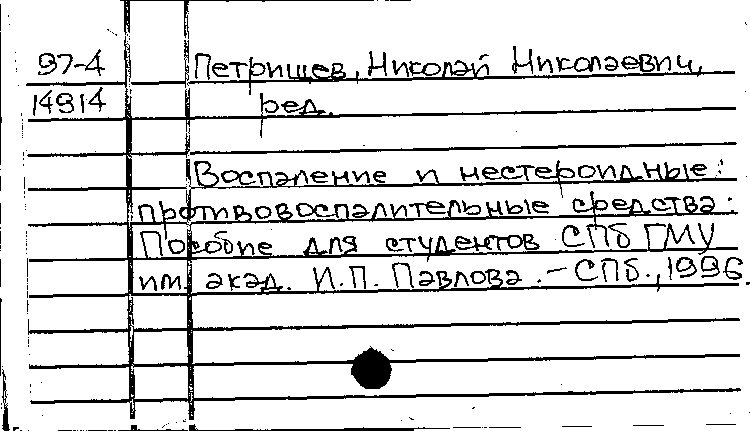 97-4 Петрищев, Николай Николаевич,
14914 ред.
Воспаление и нестероидные:
противовоспалительные средства:
Пособие для студентов СПб ГМУ
им. акад. И.П. Павлова. - СПб., 1996.